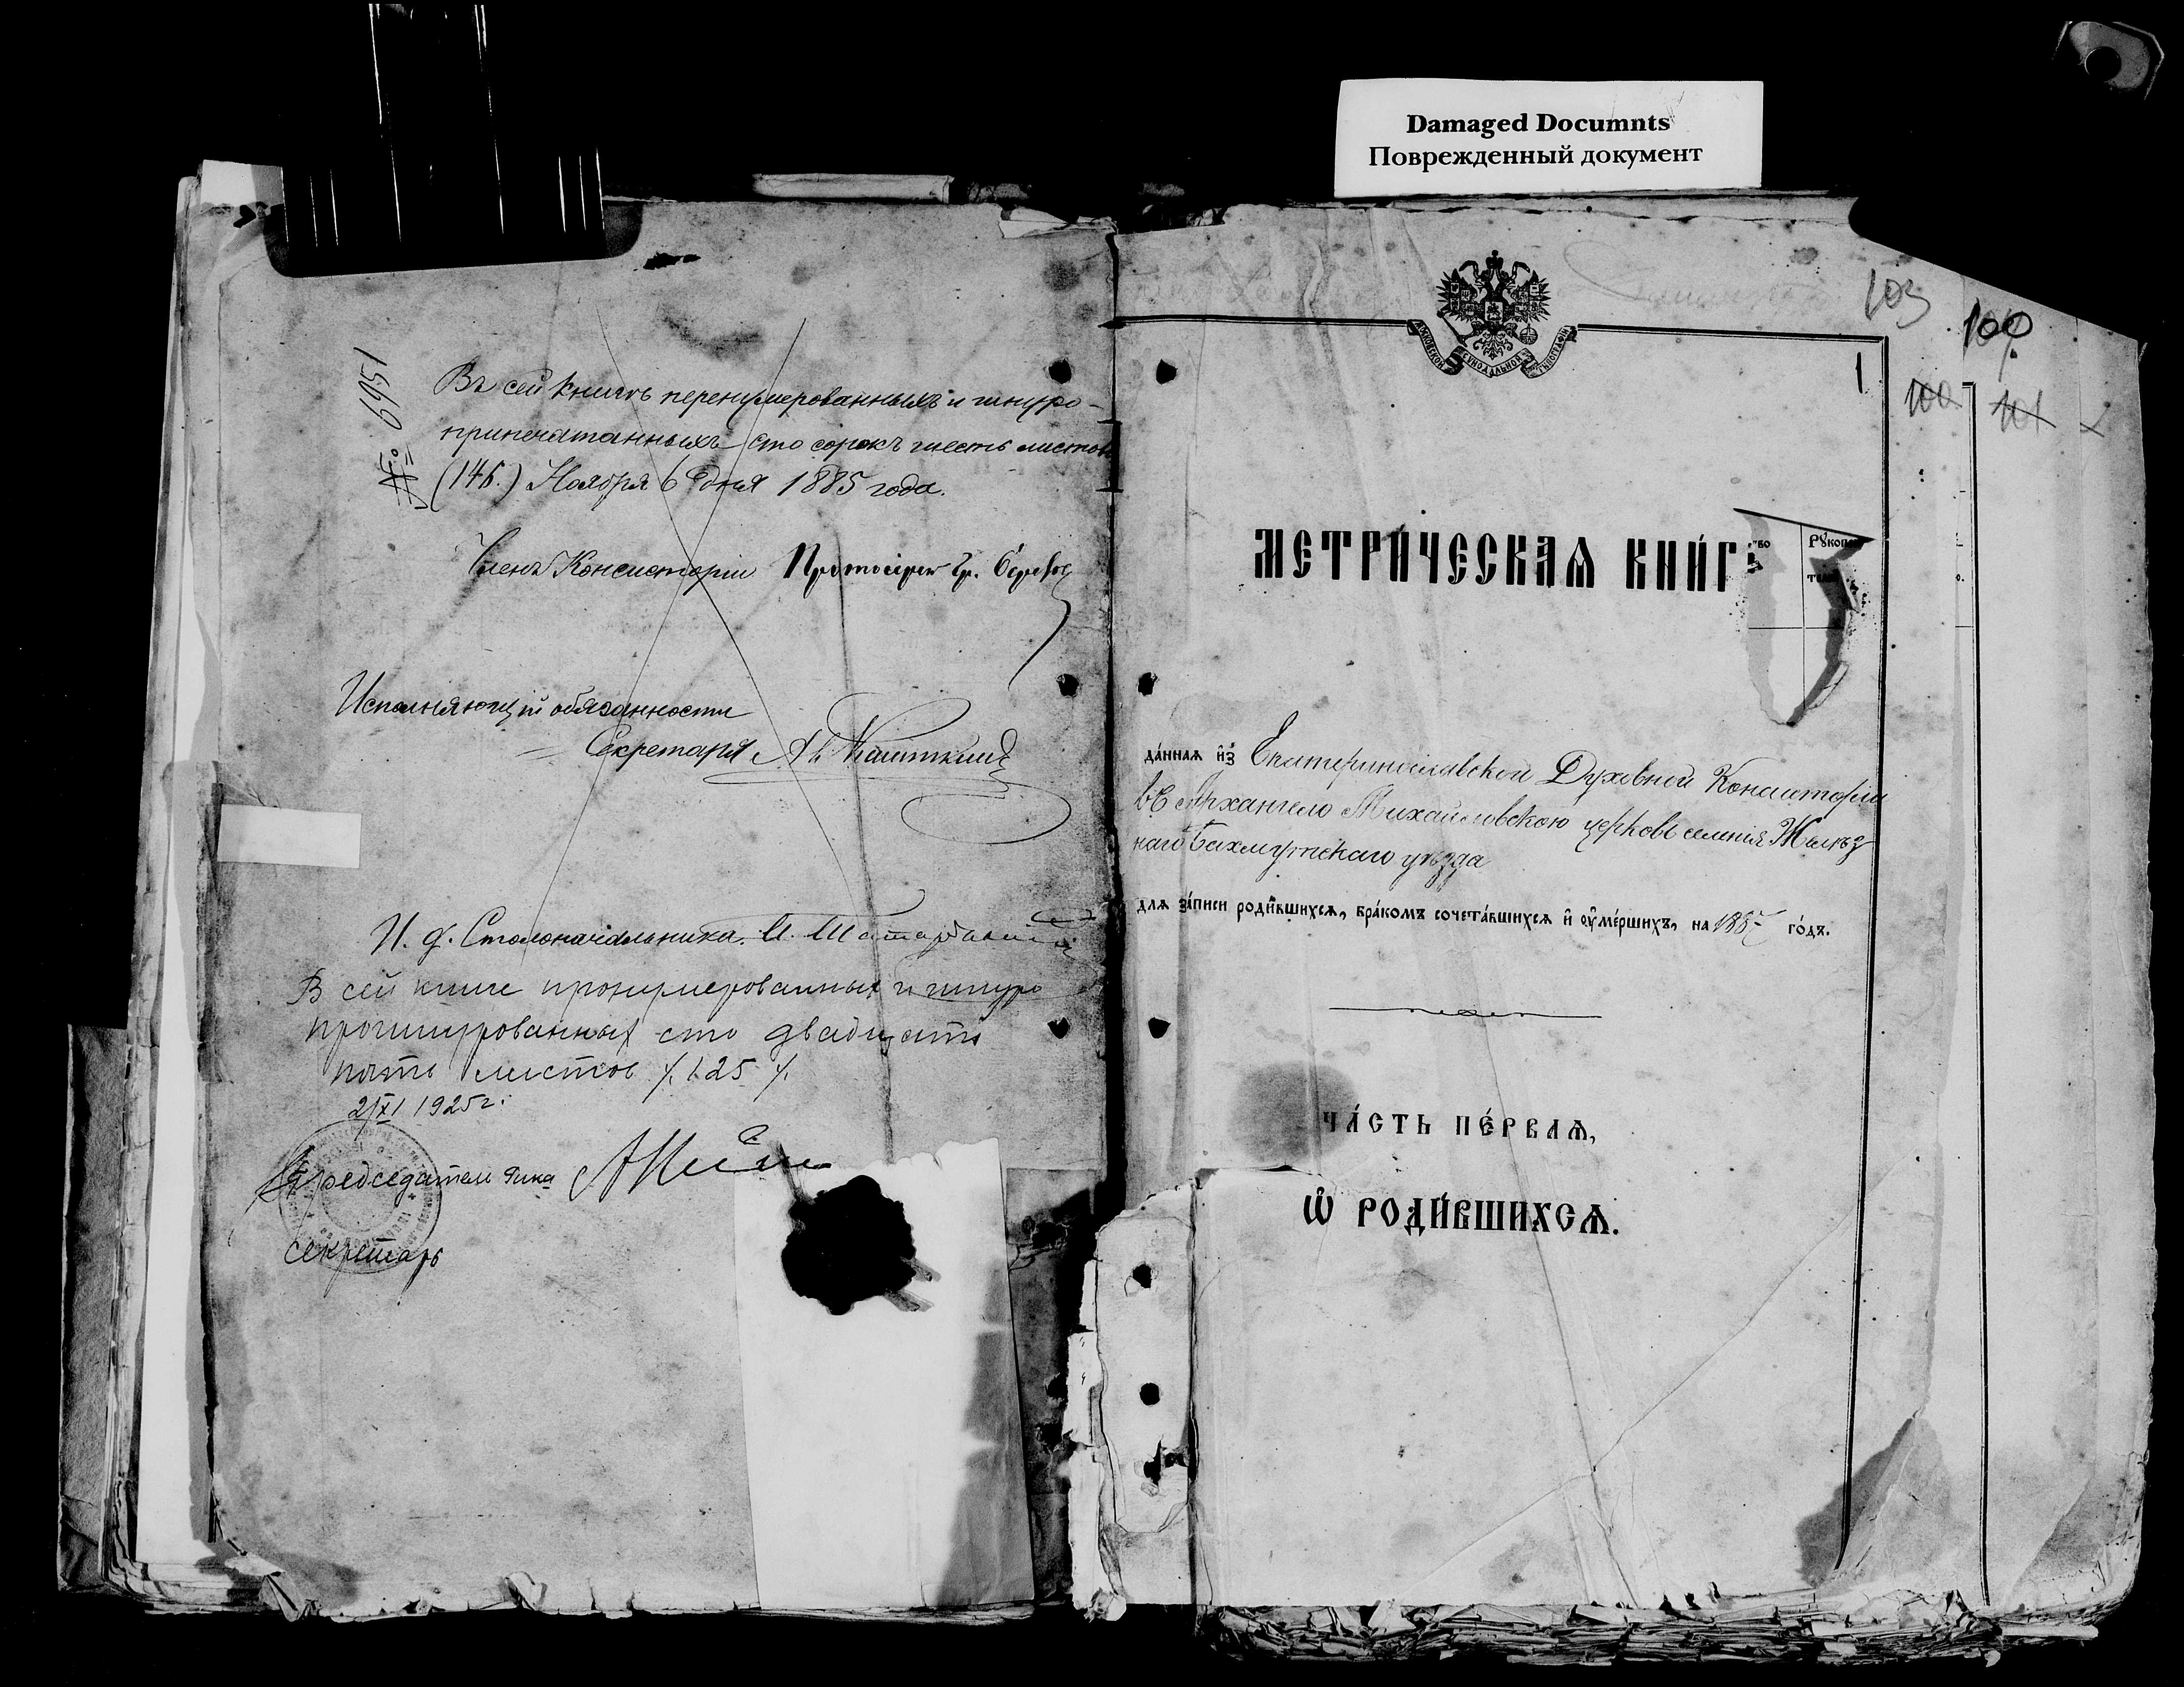 Damaged Documnts
Поврежденный документ
№ 6951
Въ сей книгѣ перенумерованныхъ и шнуро-
припечатанныхъ сто сорокъ шесть листовъ
(146.) Ноября 6 дня 1885 года.
Членъ Консисторіи Протоіерей Гр.
Исполняющій обязанности
Секретаря
И. д. Столоначальника. И.
В сей книге пронумерованных и шнуро
прошнурованных сто двадцать
пять листов /.125/.
2/XI 1925 г.
Председатель Рика
Секретарь
103
100
1
100
101
МОСКОВСКОЙ СѴНОДАЛЬНОЙ ТИПОГРАФІИ
МЕТРИ́ЧЕСКАѦ КНИ́Г
тво
Рꙋкопр
тели
да́ннаѧ и҆з̾ Екатеринославской Духовной Консисторіи
въ Архангело Михайловскою церковь селенія Желѣз
наго Бахмутскаго уѣзда
для за́писи роди́вшихсѧ, бра́комъ сочета́вшихсѧ и҆ ᲂу҆ме́ршихъ, на 188 го́дъ.
ЧА́СТЬ ПЕ́РВАѦ,
Ѡ҆ РОДИ́ВШИХСѦ.